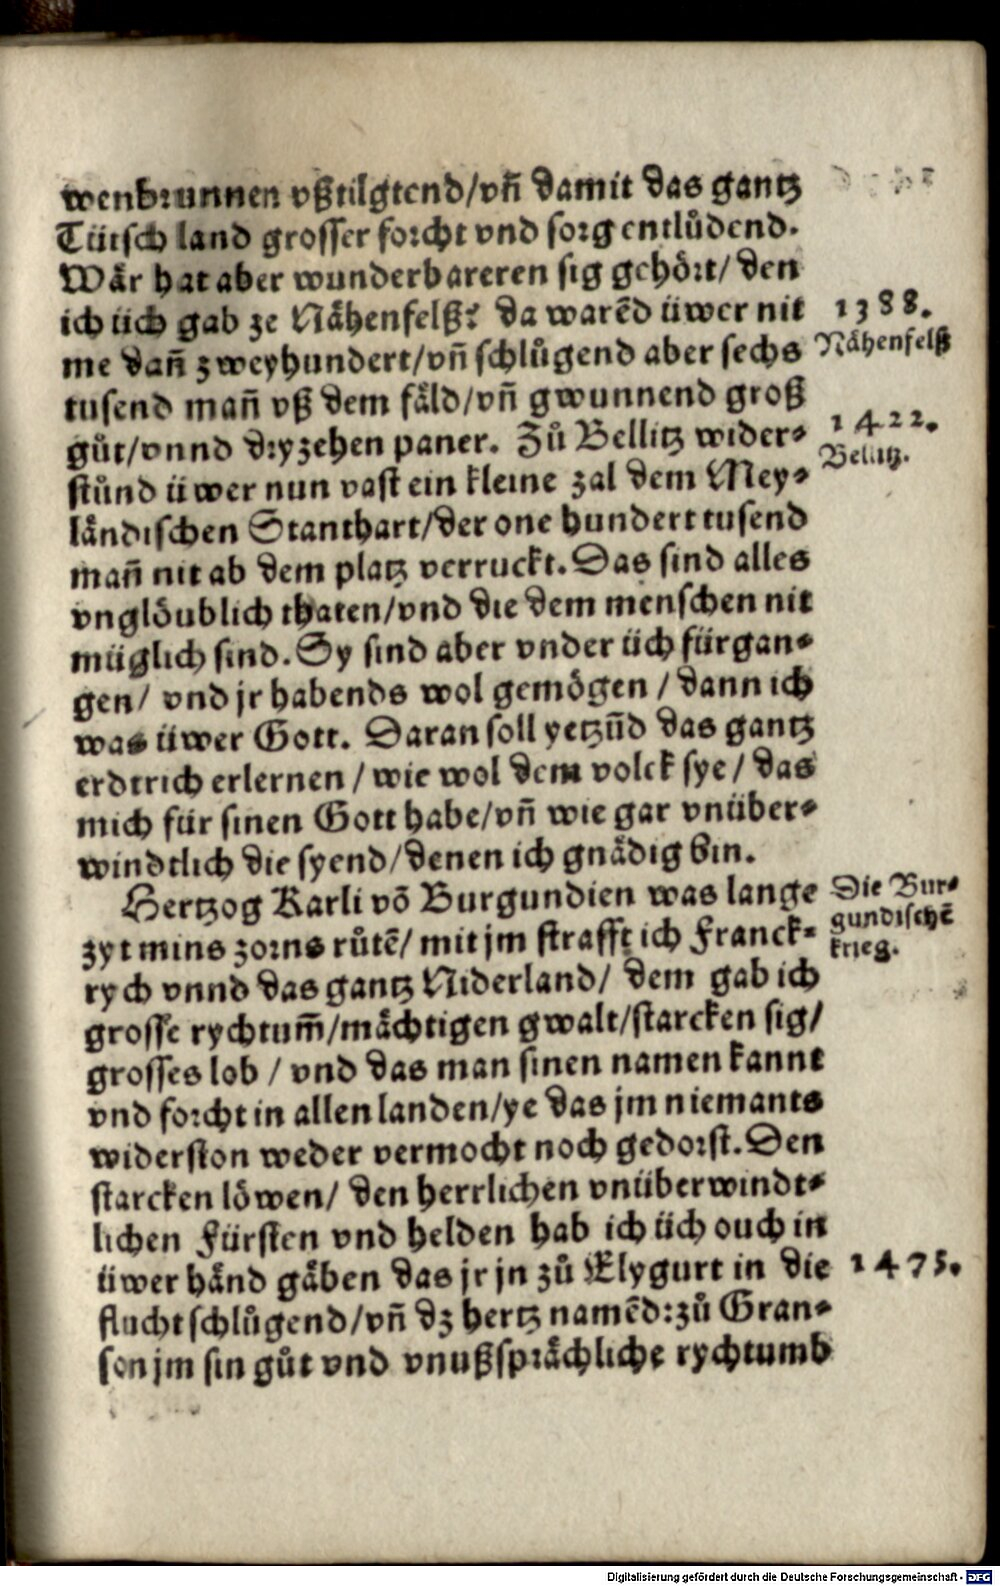 wenbrunnen vßtilgtend/vñ damit das gantz
Tütsch land grosser forcht vnd sorg entlůdend.
Wår hat aber wunderbareren sig gehört/ den
ich üch gab ze Nåhenfelß? da warēd üwer nit
1388.
me dañ zweyhundert/vñ schlůgend aber sechs
Nåhenfelß
tusend mañ vß dem fåld/vñ gwunnend groß
gůt/vnnd dryzehen paner. Zů Bellitz wider-
1422.
Bellitz.
stůnd üwer nun vast ein kleine zal dem Mey-
låndischen Stanthart/der one hundert tusend
mañ nit ab dem platz verruckt. Das sind alles
vnglöublich thaten/vnd die dem menschen nit
müglich sind. Sy sind aber vnder üch fürgan-
gen/ vnd jr habends wol gemögen / dann ich
was üwer Gott. Daran soll yetzūd das gantz
erdtrich erlernen / wie wol dem volck sye / das
mich für sinen Gott habe/vñ wie gar vnüber-
windtlich die syend/denen ich gnådig bin.
Hertzog Karli vō Burgundien was lange
Die Bur-
zyt mins zorns růtē/ mit jm strafft ich Franck-
gundischē
krieg.
rych vnnd das gantz Niderland/ dem gab ich
grosse rychtum̄/måchtigen gwalt/starcken sig/
grosses lob / vnd das man sinen namen kannt
vnd forcht in allen landen/ye das jm niemants
widerston weder vermocht noch gedorst. Den
starcken löwen/ den herrlichen vnüberwindt-
lichen Fürsten vnd helden hab ich üch ouch in
üwer hånd gåben das jr jn zů Elygurt in die
1475.
flucht schlůgend/vñ dz hertz namēd: zů Gran-
son jm sin gůt vnd vnußspråchliche rychtumb
Digitalisierung gefördert durch die Deutsche Forschungsgemeinschaft - DFG